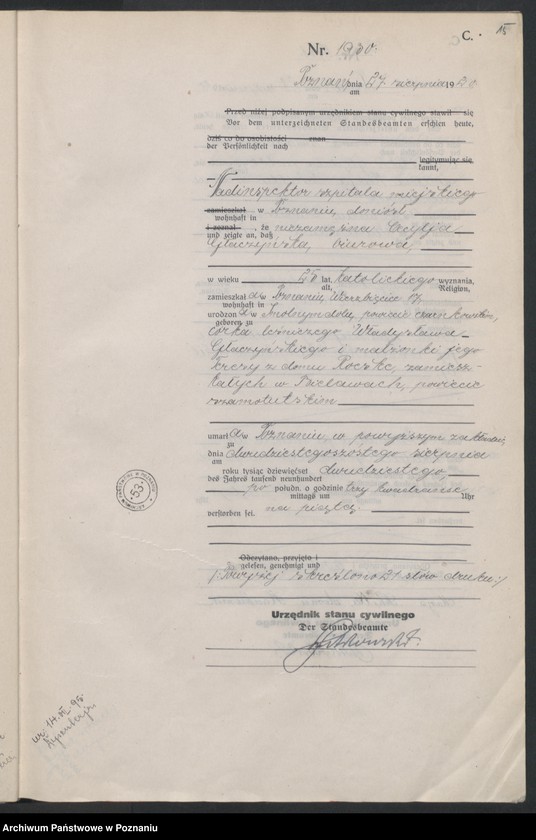 C. 15
Nr. 1930.
Poznań, dnia 27 sierpnia 1920
am
Przed niżej podpisanym urzędnikiem stanu cywilnego stawił się
Vor dem unterzeichneten Standesbeamten erschien heute,
dziś co do osobistości znan
der Persönlichkeit nach
legitymując się
kannt,
Nadinspektor szpitala miejskiego
zamieszkał w Poznaniu, doniósł
wohnhaft in
i zeznał, że niezamężna
und zeigte an, daß
biurowa,
w wieku lat, katolickiego wyznania,
alt, Religion,
zamieszkał a w Poznaniu, Wierzbięcice 17,
wohnhaft in
urodzon a w Smolnymdole, powiecie czarnkowskim,
geboren zu
córka leśniczego Władysława
i małżonki jego
z domu zamiesz-
kałych w powiecie
szamotulskim
umarł a w Poznaniu, w powyższym zakładzie,
zu
dnia dwudziestegoszóstego sierpnia
am
roku tysiąc dziewięćset dwudziestego,
des Jahres tausend neunhundert
po połudn. o godzinie trzy kwadranse
mittags um Uhr
na piątą.
verstorben sei.
Odczytano, przyjęto i
gelesen, genehmigt und
/:Powyżej skreślono 21 słów druku:/
Urzędnik stanu cywilnego
Der Standesbeamte
53
ur. 14.XI 95
Archiwum Państwowe w Poznaniu